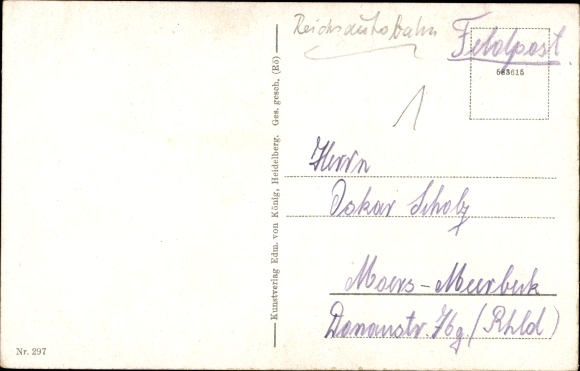 Reichsautobahn
Feldpost
568615
1
Herrn
Oskar Scholz
Moers-Meerbeck
Donaustr. 76g. (Rhld)
Kunstverlag Edm. von König, Heidelberg. Ges. gesch. (Rö)
Nr. 297